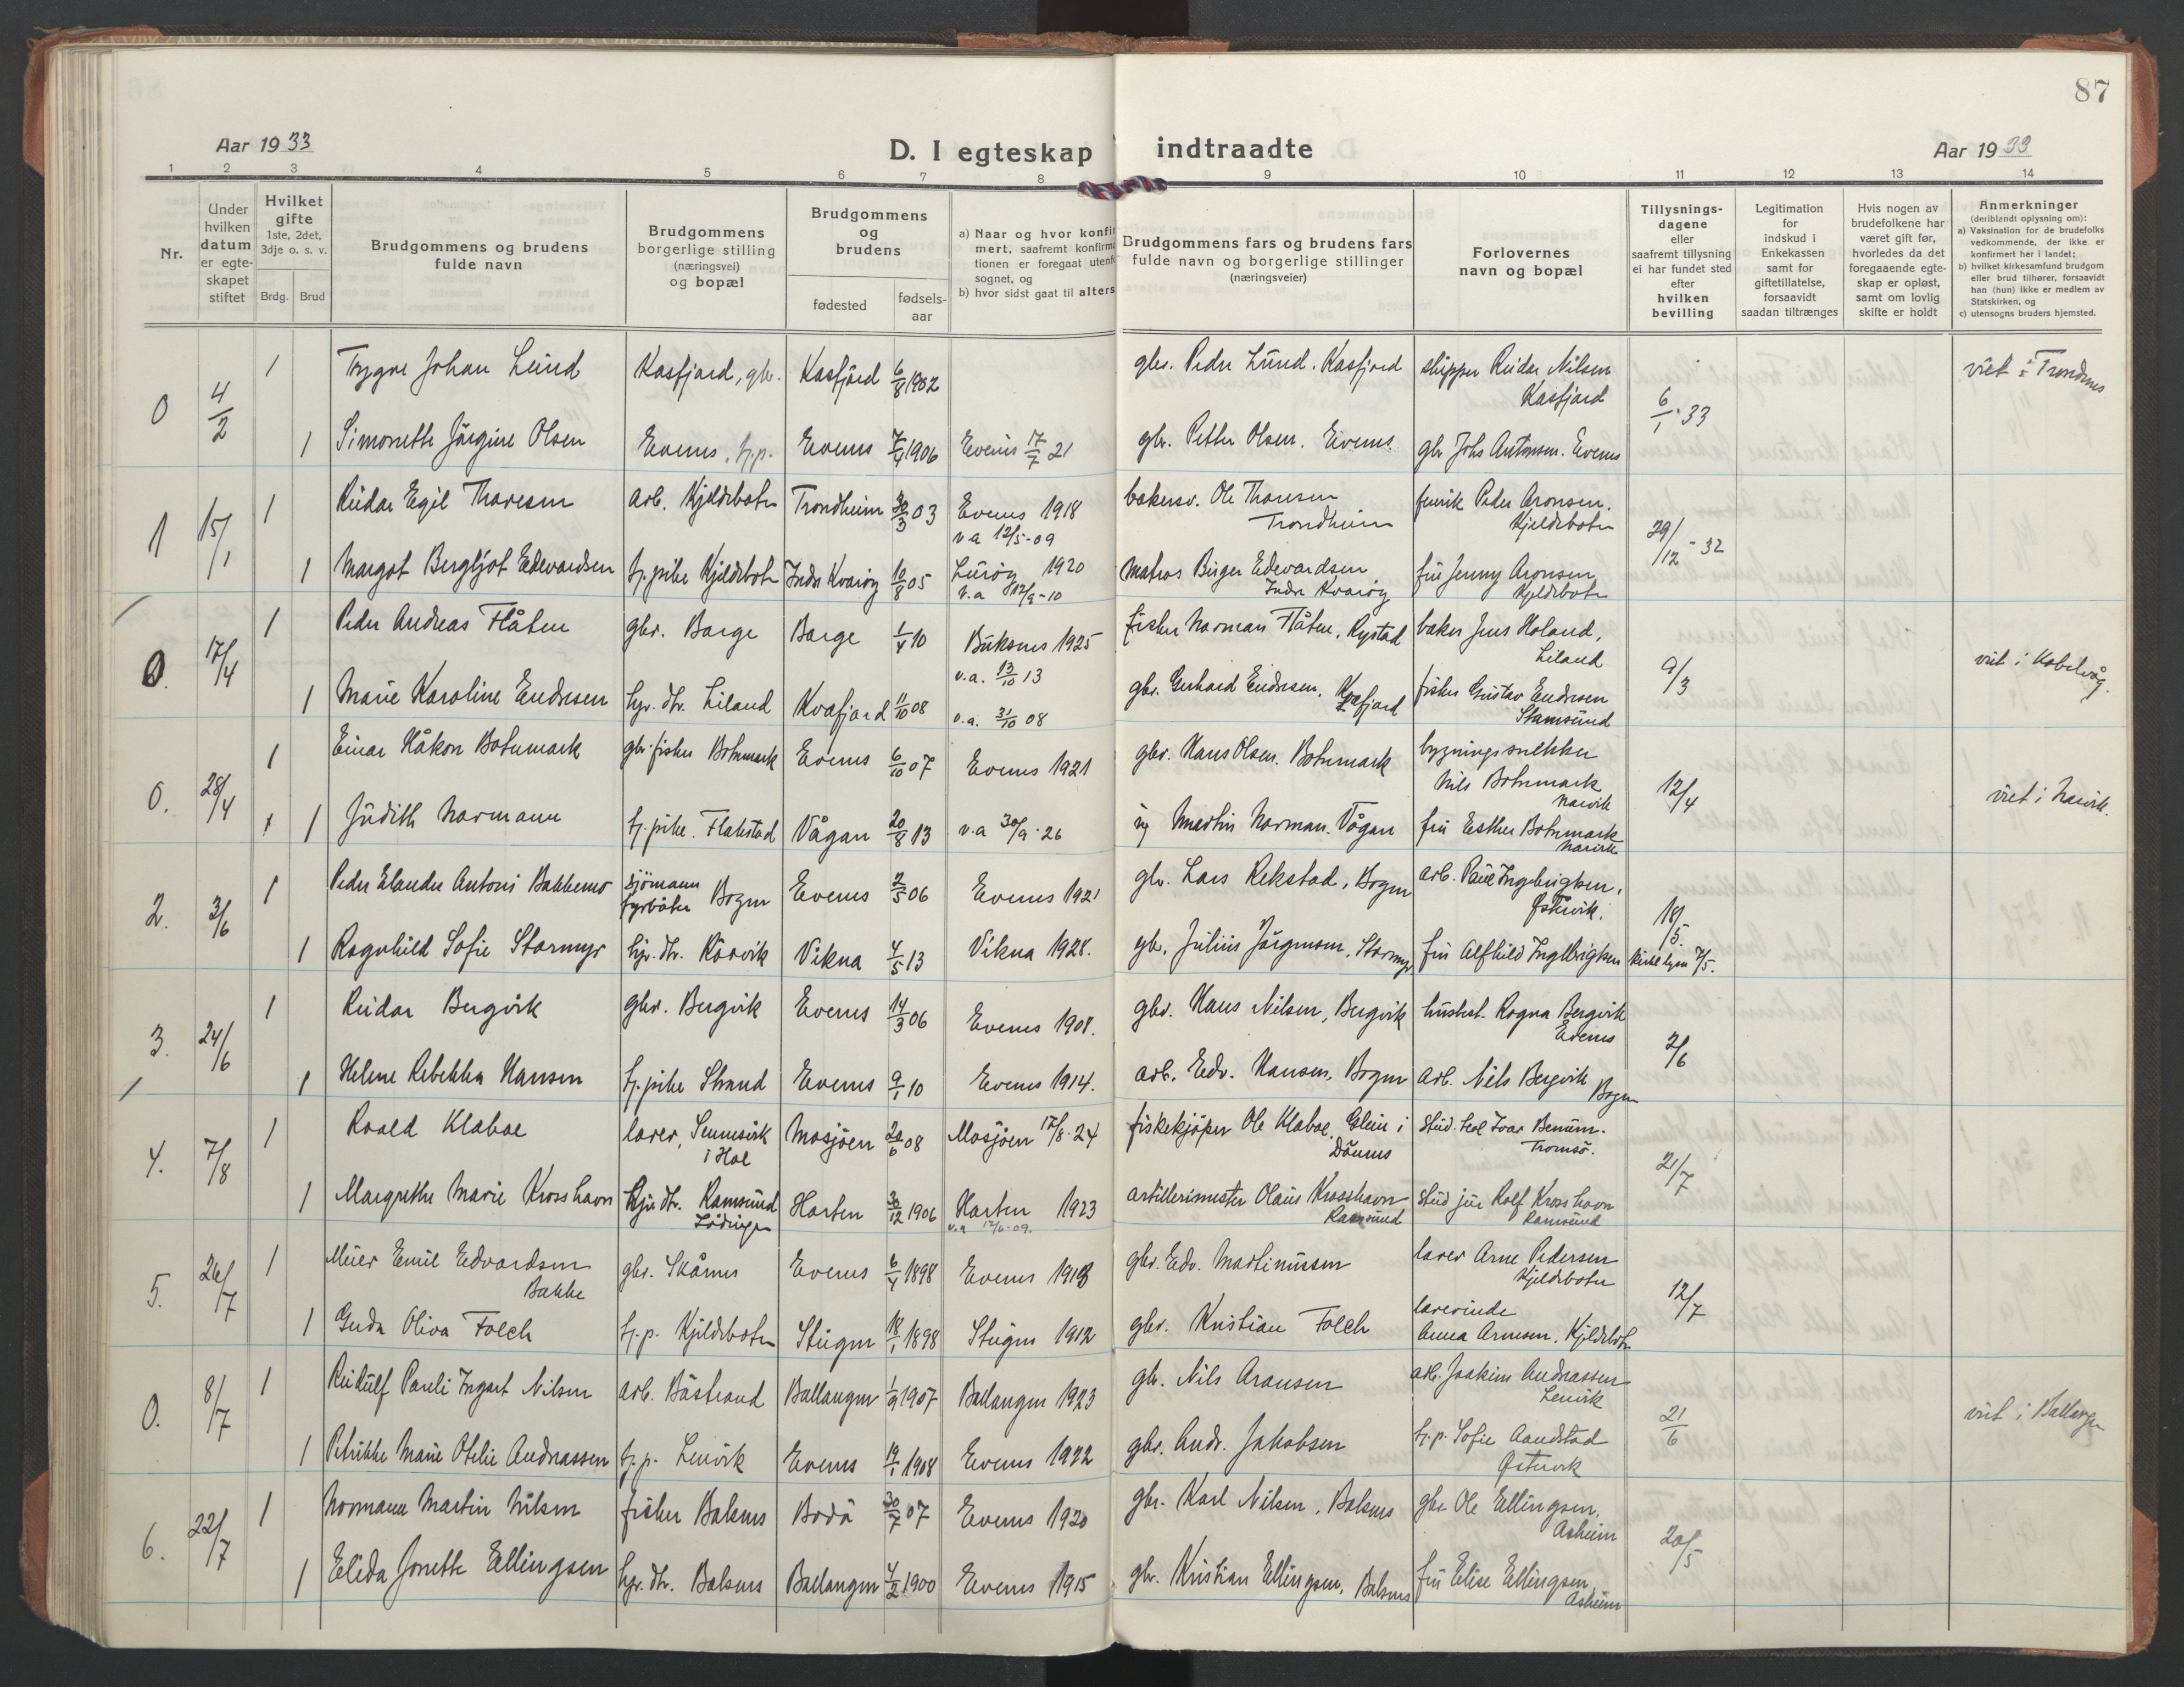 87
Aar 1933
D. I egteskap indtraadte
Aar 1933
1 2 3 4 5 6 7 8 9 10 11 12 13 14
Nr.
Under hvilken datum er egteskapet stiftet
Hvilket gifte 1ste, 2det, 3dje o. s. v.
Brdg. Brud
Brudgommens og brudens fulde navn
Brudgommens borgerlige stilling (næringsvei) og bopæl
Brudgommens og brudens
fødested
fødselsaar
a) Naar og hvor konfirmert, saafremt konfirmationen er foregaat utenfor sognet, og
b) hvor sidst gaat til alters
Brudgommens fars og brudens fars fulde navn og borgerlige stillinger (næringsveier)
Forlovernes navn og bopæl
Tillysningsdagene eller saafremt tillysning ei har fundet sted efter hvilken bevilling
Legitimation for indskud i Enkekassen samt for giftetillatelse, forsaavidt saadan tiltrænges
Hvis nogen av brudefolkene har været gift før, hvorledes da det foregaaende egteskap er opløst, samt om lovlig skifte er holdt
Anmerkninger
(deriblandt oplysning om):
a) Vaksination for de brudefolks vedkommende, der ikke er konfirmert her i landet;
b) hvilket kirkesamfund brudgom eller brud tilhører, forsaavidt han (hun) ikke er medlem av Statskirken, og
c) utensogns bruders hjemsted.
0 4/2 1 Trygve Johan Lund Kasfjord, gbr. Kasfjord 6/8 1902 gbr. Peder Lund. Kasfjord skipper Reidar Nilsen Kasfjord 6/1-33 viet i Trondenes
1 Simonette Jørgine Olsen Evenes, tj.p. Evenes 7/4 1906 Evenes 17/7 21 gbr. Petter Olsen. Evenes gbr Johs Antonsen. Evenes
1 15/1 1 Reidar Egil Thoresen arb. Kjeldebotn Trondheim 30/3 03 Evenes 1918 v a 12/5-09 bakersv. Ole Thoresen Trondheim fenrik Peder Aronsen. Kjeldebotn 29/12-32
1 Margot Bergljot Edevardsen tj.pike Kjeldebotn Indre Kvarøy 10/8 05 Lurøy 1920 v.a 12/9-10 matros Birger Edevardsen Indre Kvarøy fru Jenny Aronsen Kjeldebotn
0. 17/4 1 Peder Andreas Flåten gbr. Barge Barge 1/4 10 Buksnes 1925 v.a. 13/10 13 fisker Norman Flåten, Rystad baker Jens Holand, Liland 9/3 viet i Kabelvåg.
1 Marie Karoline Endresen hj. dtr. Liland Kvæfjord 11/10 08 v.a. 31/10 08 gbr. Gerhard Endresen. Kvæfjord fisker Gustav Endresen Stamsund
0. 28/4 1 Einar Håkon Botnmark gbr. fisker Botnmark Evenes 6/10 07 Evenes 1921 gbr. Hans Olsen. Botnmark bygningssnekker Nils Botnmark Narvik 12/4 viet i Narvik.
1 Judith Normann tj.pike. Flakstad Vågan 20/8 13 v.a 30/9-26 Martin Norman. Vågan fru Esther Botnmark Narvik
2. 3/6 1 Peder Elander Antoni sjømann fyrbøter Bogen Evenes 2/5 06 Evenes 1921 gbr. Lars Rekstad, Bogen arb. Paul Ingebrigtsen, 18/5.
1 Ragnhild Sofie Stormyr hj. dtr. Rørvik Vikna 4/5 13 Vikna 1928. gbr. Julius Jørgensen, Stormyr fru Alfhild Ingebrigtsen
3. 24/6 1 Reidar Bergvik gbr. Bergvik Evenes 14/3 06 Evenes 1908. gbr. Hans Nilsen, Bergvik husbest. Ragna Bergvik Evenes 2/6
1 Helene Rebekka Hansen tj.pike Strand Evenes 9/1 10 Evenes 1914. arb. Edv. Hansen, Bogen arb. Nils Bergvik Bogen
4. 7/8 1 Roald Klaboe lærer, Sennesvik i Hol Mosjøen 20/6 08 Mosjøen 17/8-24 fiskekjøper Ole Klaboe, Glein i Dønnes stud. teol Ivar Benum. Tromsø. 21/7
1 Margrethe Marie Krosshavn hj. dtr. Ramsund Lødingen Horten 30/12 1906 Horten 1923 artillerimester Olaus Krosshavn Ramsund stud jur Rolf Krosshavn Ramsund
5. 26/7 1 Meier Emil Edvardsen Bakke gbr. Skårnes Evenes 6/4 1898 Evenes 1913 gbr. Edv. Martinussen lærer Arne Pedersen Kjeldebotn 12/7
1 Guda Oliva Folch tj.p. Kjeldebotn Steigen 18/1 1898 Steigen 1912 gbr. Kristian Folch lærerinde Anna Arnesen. Kjeldebotn
0. 8/7 1 Reidulf Pareli Ingart Nilsen arb. Båstrand Ballangen 1/9 1907 Ballangen 1923 gbr. Nils Aronsen arb. Joakim Andreassen Lenvik 21/6 viet i Ballangen
1 Petrikke Marie Otelie Andreassen tj.p. Lenvik Evenes 19/1 1908 Evenes 1922 gbr. Andr. Jakobsen tj.p. Sofie Aandstad Østervik
6. 22/7 1 Normann Martin Nilsen fisker Balsnes Bodø 30/7 07 Evenes 1920 gbr. Karl Nilsen, Balsnes gbr Ole Ellingsen, Åsheim 20/5
1 Elida Jonette Ellingsen hj. dtr. Balsnes Ballangen 4/2 1900 Evenes 1915 gbr. Kristian Ellingsen, Balsnes fru Elise Ellingsen Åsheim